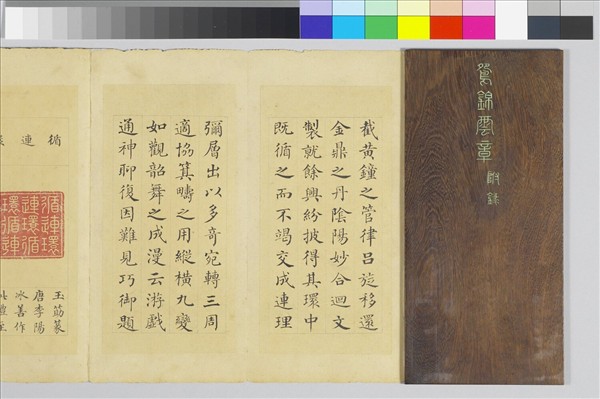 鴛錦雲章
截黄鐘之管律呂旋移還
金鼎之丹陰陽妙合迴文
製就餘興紛披得其環中
既循之而不竭交成連理
彌層出以多奇宛轉三周
適協箕疇之用縱橫九變
如觀韶舞之成漫云游戲
通神聊復因難見巧御題
循連
循連環
連環循
環循連
玉筯篆
唐李陽
冰善作